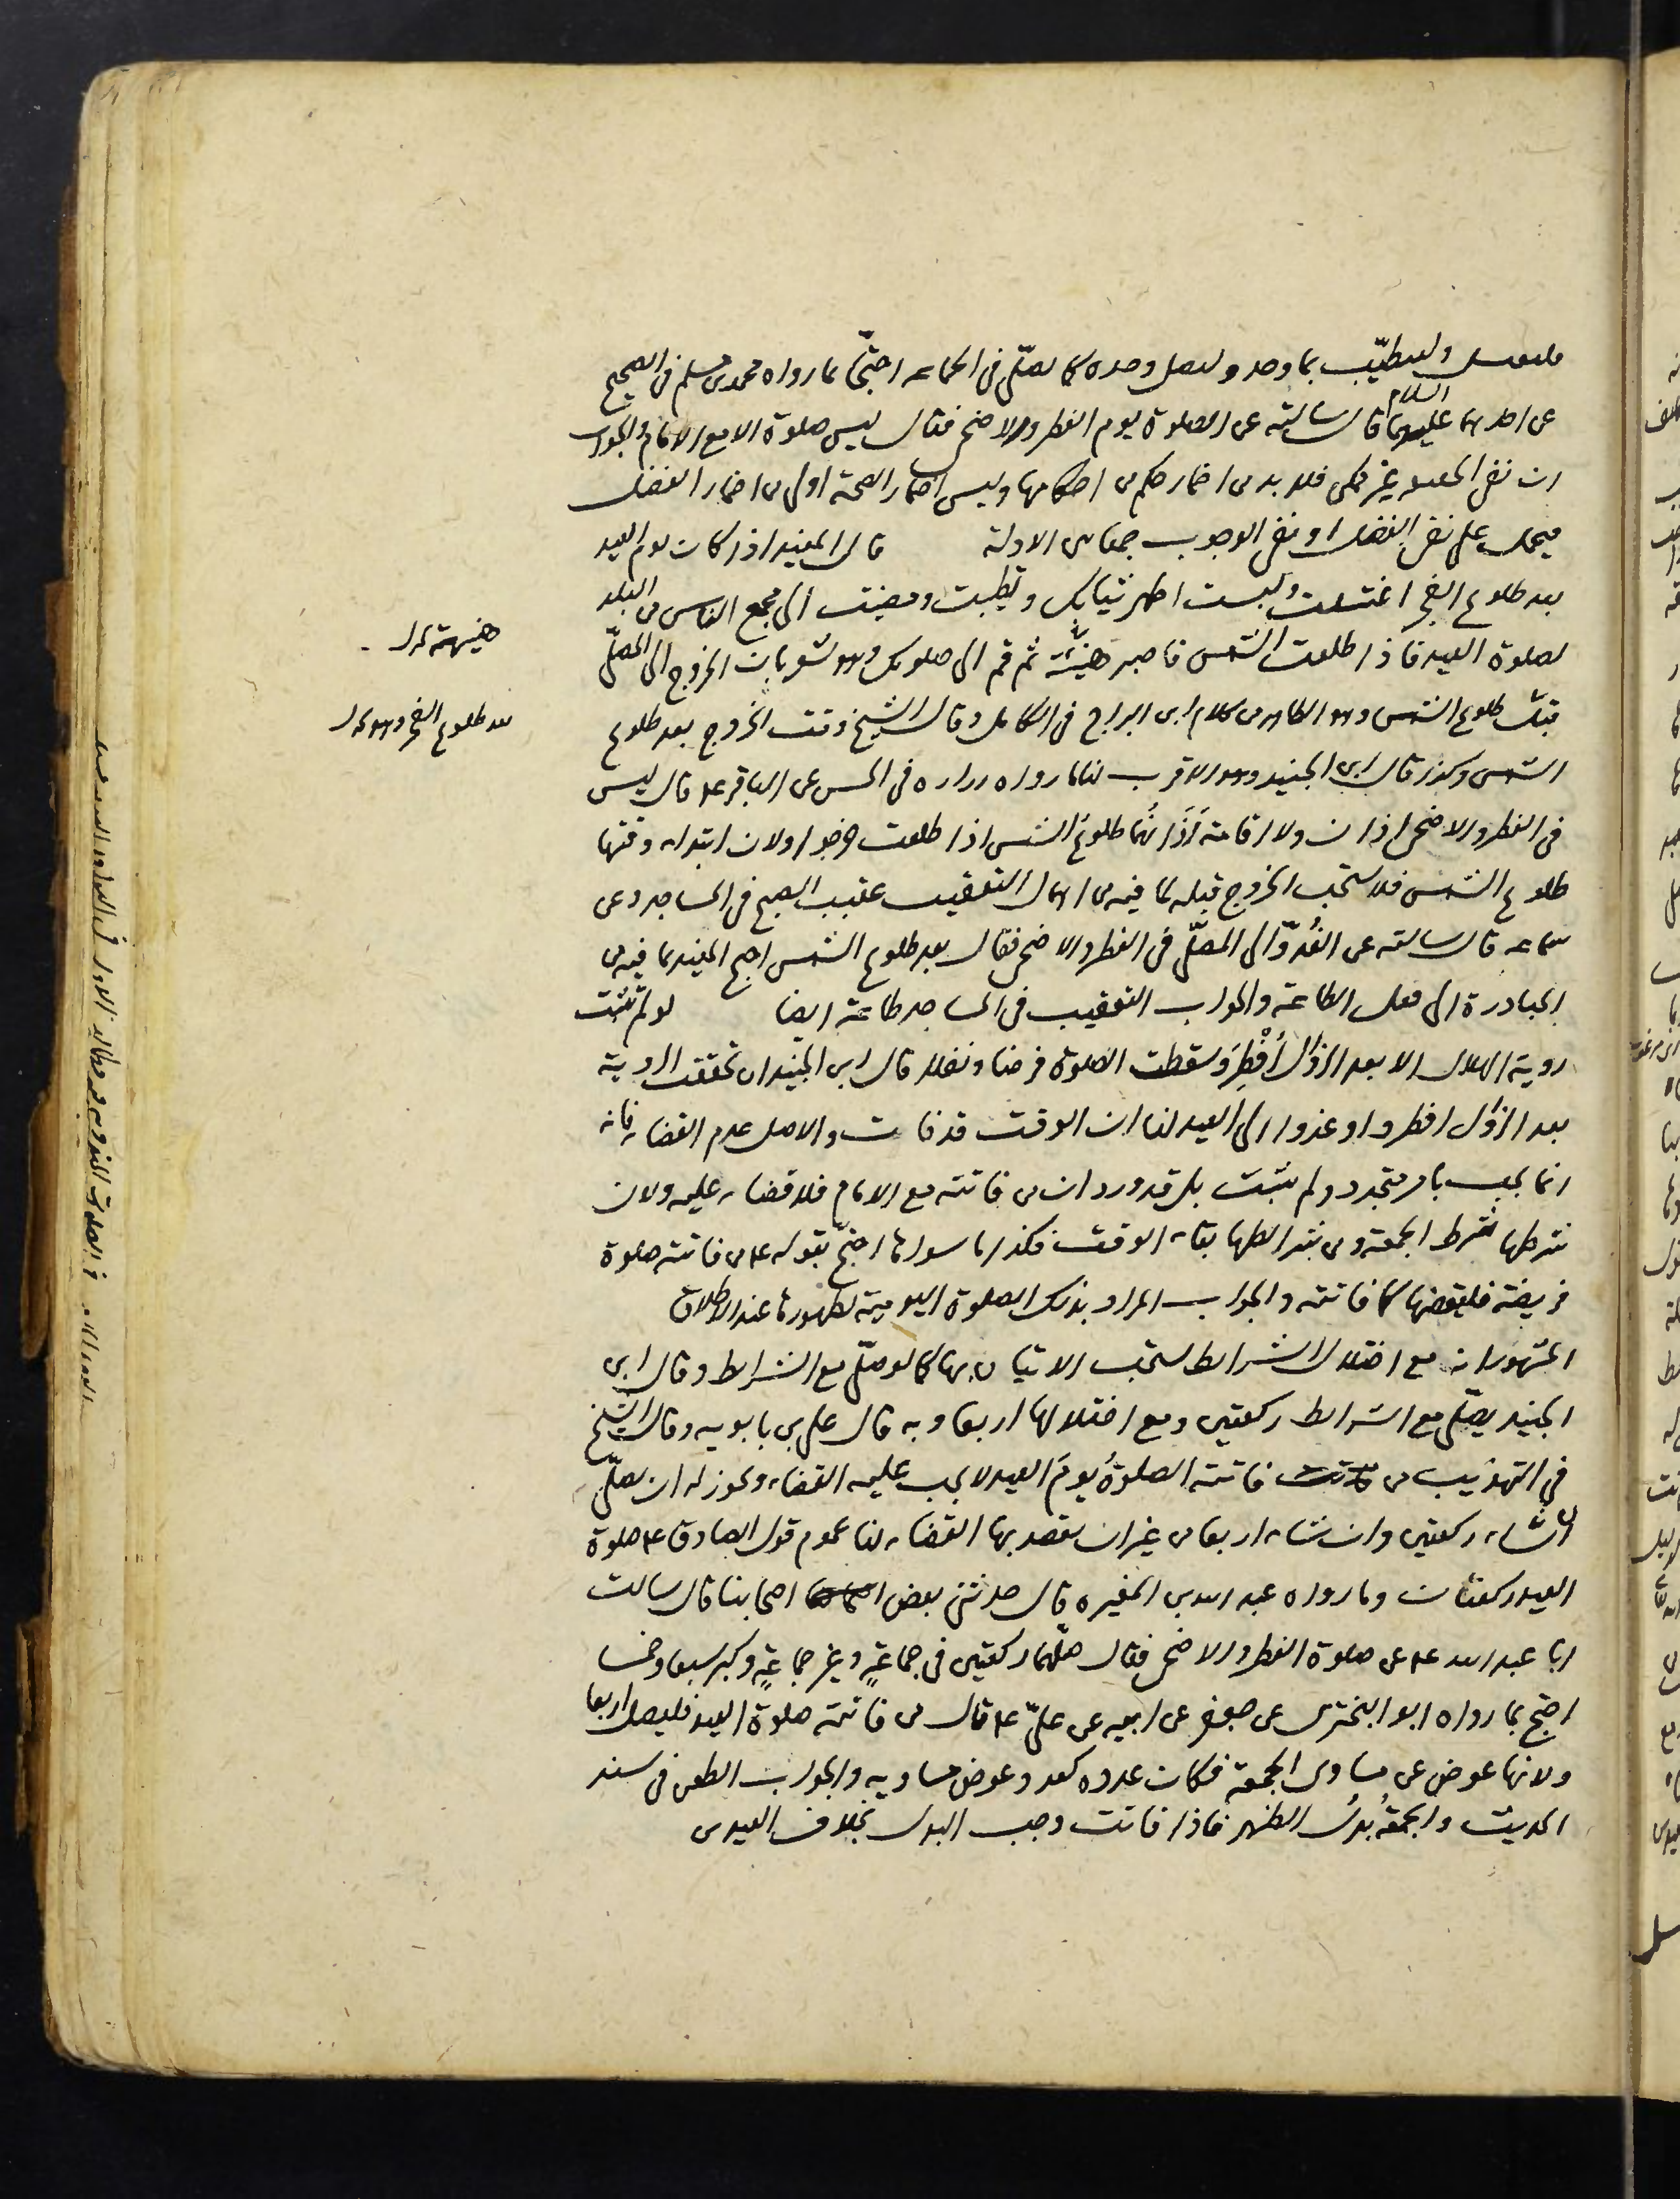 فليغتسل وليتطيّب بما وجد وليصل وحده كما يصلّي في الجماعه احتجّا بما رواه محمد بن مسلم في الصحيح
عن احدهما عليهما السلام قال سالته عن الصلوة يوم الفطر والاضحى فقال ليس صلوة الا مع الامام والجواب
ان نفي الحقيقه غير ممكن فلابد من اضمار حكم من احكامها وليس اضمار الصحة اولى من اضمار الفضل
فيحمل على نفي الفضل او نفي الوجوب جمعا بين الادلة قال المفيد اذا كان يوم العيد
بعد طلوع الفجر اغتسلت ولبست اطهر ثيابك وتطيبت ومضيت الى مجمع الناس من البلد
لصلوة العيد فاذا طلعت الشمس فاصبر هنيئة ثم قم الى صلوتك وهو يشعر بان الخروج الى المصلّى
قبل طلوع الشمس وهو الظاهر من كلام ابن البراج في الكامل وقال الشيخ وقت الخروج بعد طلوع
الشمس وكذا قال ابن الجنيد وهو الاقرب لنا ما رواه زراره في الحسن عن الباقر ع قال ليس
في الفطر والاضحى اذان ولا اقامة اَذَانُهُما طلوعُ الشمس اذا طلعت خرجوا ولان ابتداء وقتها
طلوع الشمس فلا يستحب الخروج قبله لما فيه من اهمال التعقيب عقيب الصبح في المساجد وعن
سماعه قال سالته عن الغُدوّ الى المصلّى في الفطر والاضحى فقال بعد طلوع الشمس احتج المفيد بما فيه من
المبادرة الى فعل الطاعة والجواب التعقيب في المساجد طاعة ايضا لو لم تثبت
روية الهلال الا بعد الزوال اُفْطِرَ وسقطت الصلوة فرضا ونفلا قال ابن الجنيد ان تحققت الروية
بعد الزوال افطروا وغدوا الى العيد لنا ان الوقت قد فات والاصل عدم القضاء فانه
انما يجب بامر متجدد ولم يثبت بل قد ورد ان من فاتته مع الامام فلا قضاء عليه ولان
شرطها شرط الجمعة ومن شرائطها بقاء الوقت فكذا ما ساواها احتجّ بقوله ع من فاتته صلوة
فريضة فليقضها كما فاتته والجواب المراد بذلك الصلوة اليومية لظهورها عند الاطلاق
المشهور انه مع اختلال الشرايط يستحب الاتيان بها كما لو صلّى مع الشرايط وقال ابن
الجنيد يصلّى مع الشرايط ركعتين ومع اختلالها اربعا وبه قال علي بن بابويه وقال الشيخ
في التهذيب من فاتته الصلوةُ يومَ العيد لا يجب عليه القضاء ويجوز له ان يصلّي
ان شاء ركعتين وان شاء اربعا من غير ان يقصد بها القضاء لنا عموم قول الصادق ع صلوة
العيد ركعتان وما رواه عبد الله بن المغيره قال حدثني بعض اصحابنا قال سالت
ابا عبد الله ع عن صلوة الفطر والاضحى فقال صلّهما ركعتين في جماعةٍ وغير جماعةٍ وكبر سبعا وخمسا
احتج بما رواه ابو البختري عن جعفر عن ابيه عن عليّ ع قال من فاتته صلوة العيد فليصل اربعا
ولانها عوض عن مساوى الجمعة فكان عدده كعدد عوض مساويه والجواب الطعن في سند
الحديث والجمعةُ بدلُ الظهر فاذا فاتت وجب البدل بخلاف العيدين
هنيهة
بعد طلوع الفجر وهو